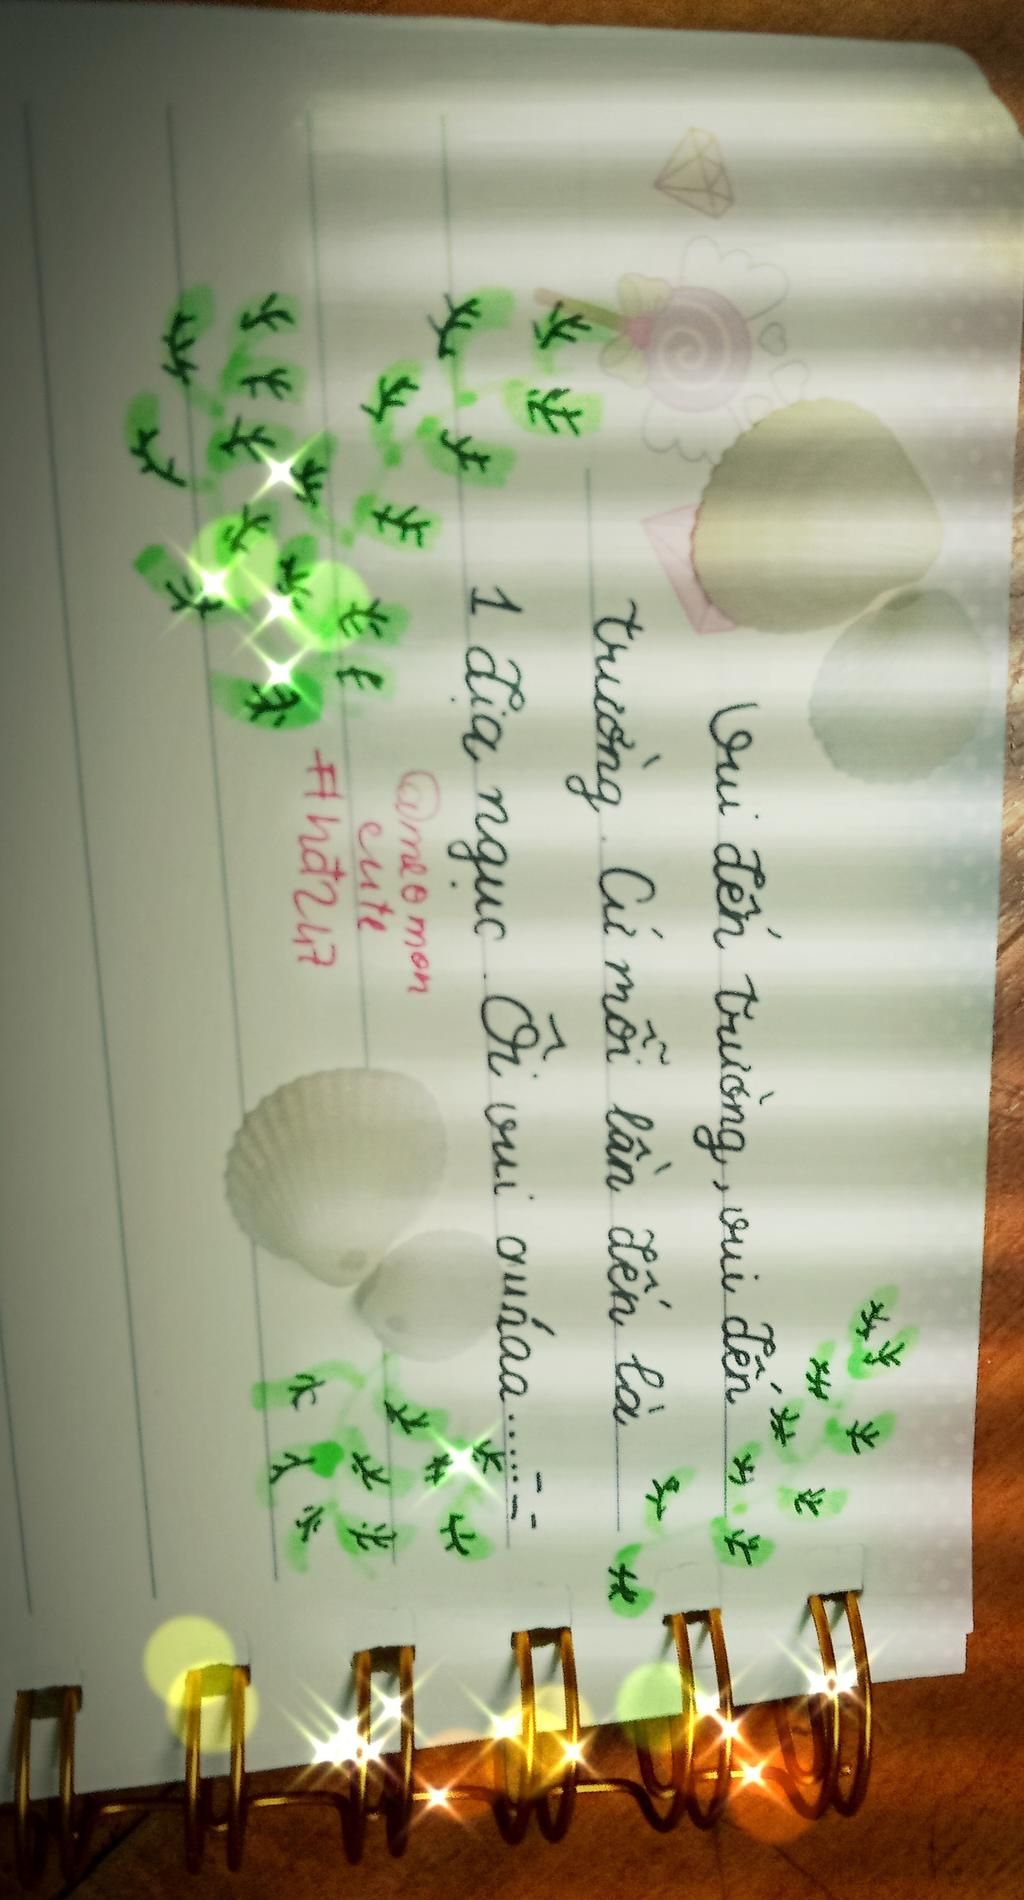 Vui đến trường, vui đến
trường. Cứ mỗi lần đến là
1 địa ngục. Ôi vui quáaa.....---
@mèo mon
cute
#hđ247